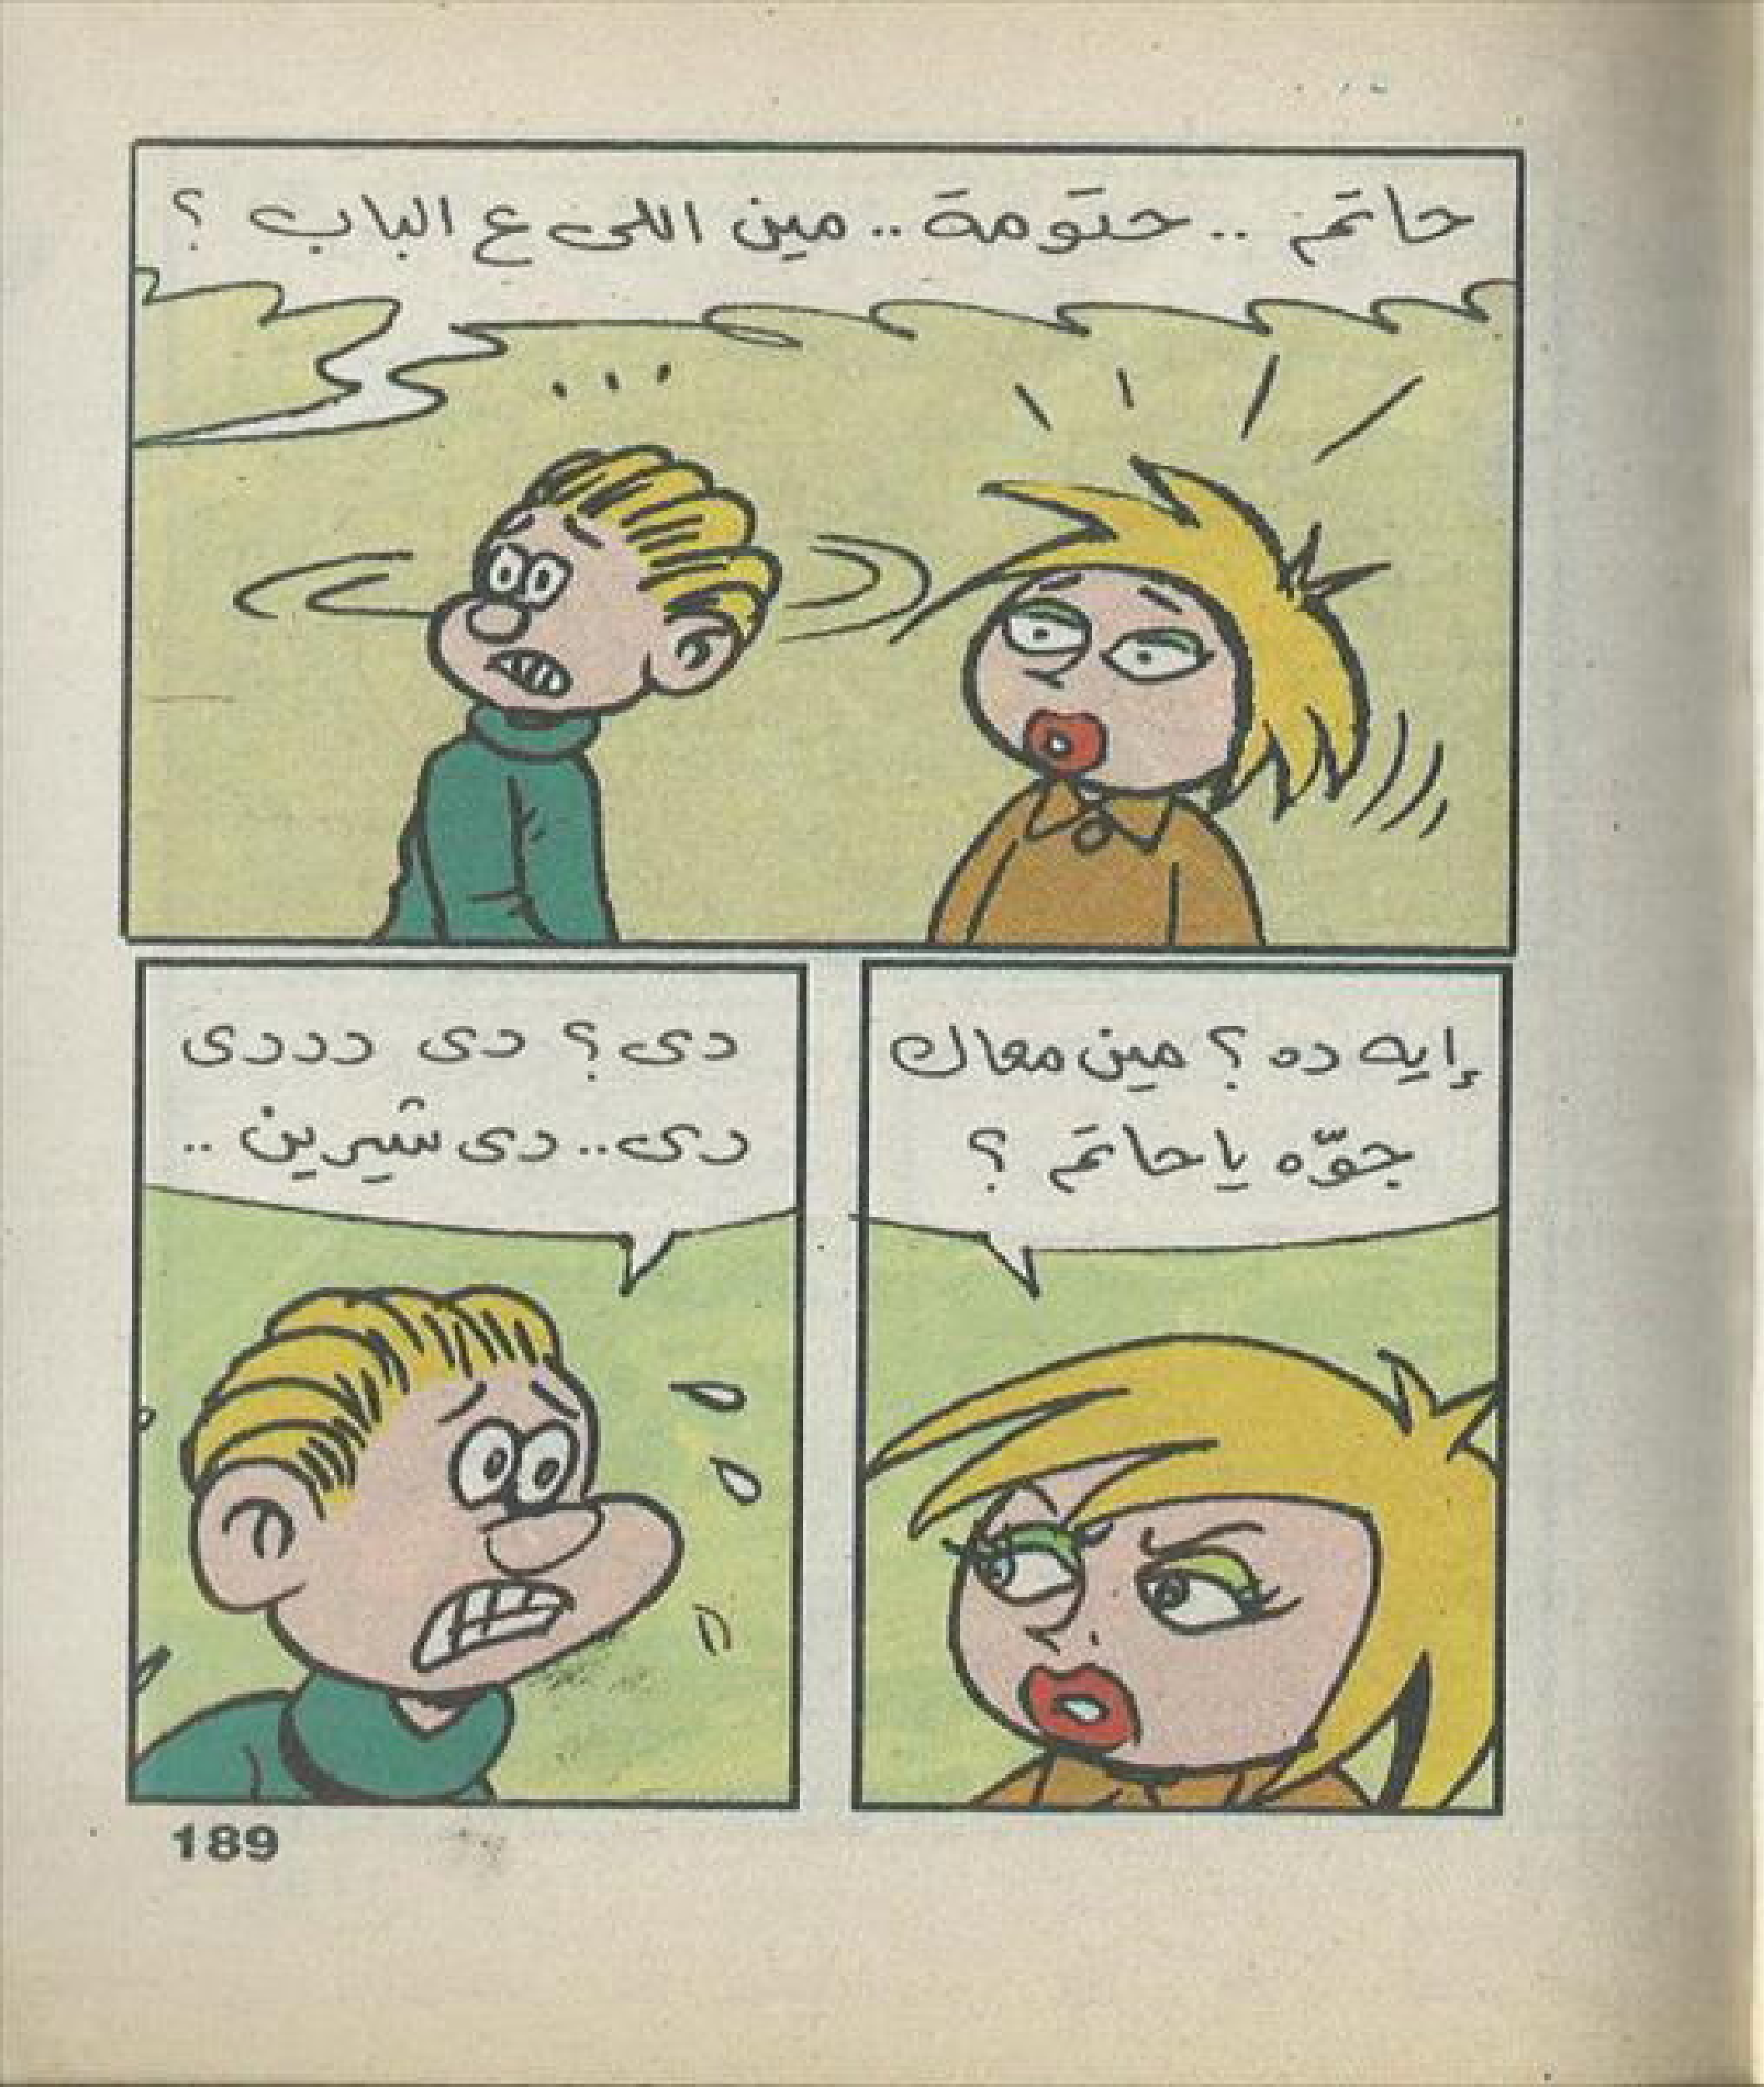 حاتم .. حتومة .. مين اللى ع الباب ؟
إيه ده ؟ مين معاك
جوّه يا حاتم ؟
دى ؟ دى دددى
دى .. دى شيرين ..
189